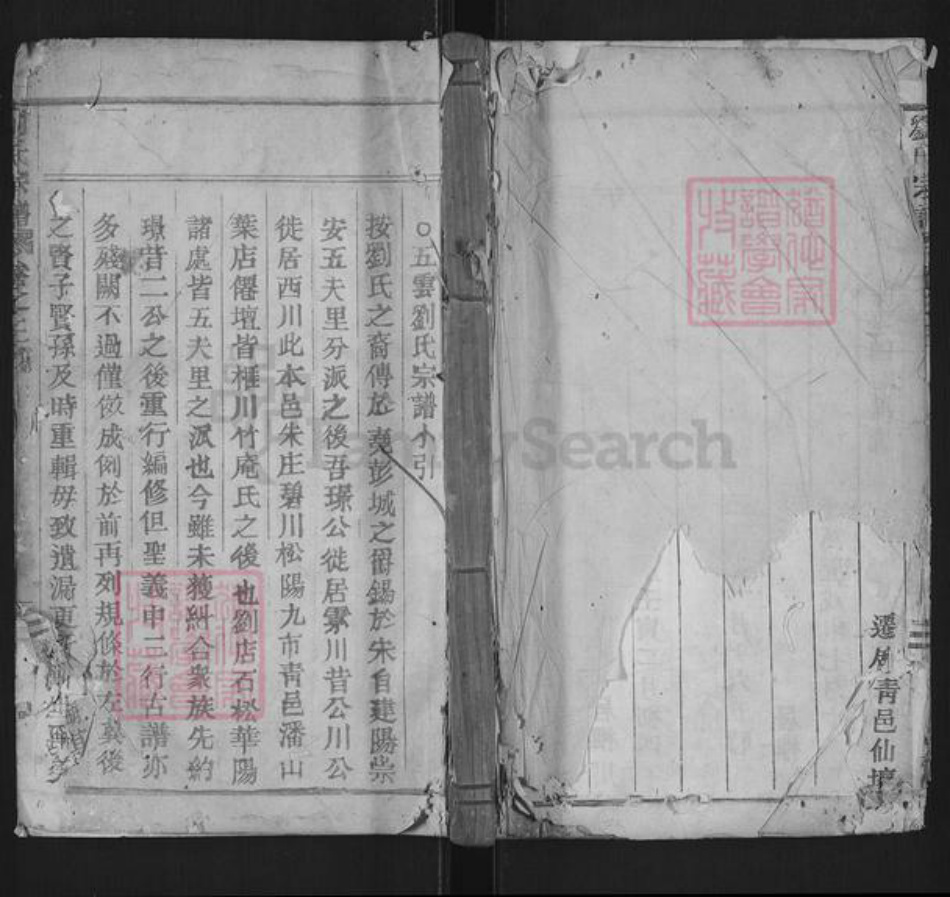 劉氏宗譜
遷居青邑仙壇
○五雲劉氏宗譜小引
按劉氏之裔傳於堯彭城之爵錫於朱自建陽崇
安五夫里分派之後吾璟公徙居霁川昔公川公
徙居西川此本邑朱庄碧川松陽九市青邑潘山
葉店僊壇皆樞川竹庵氏之後也劉店石松華陽
諸處皆五夫里之派也今雖未獲糾合衆族先約
璟昔二公之後重行編修但聖義申二行古譜亦
多殘闕不過僅倣成例於前再列規條於左冀後
之賢子賢孫及時重輯毋致遺漏更
FamilySearch